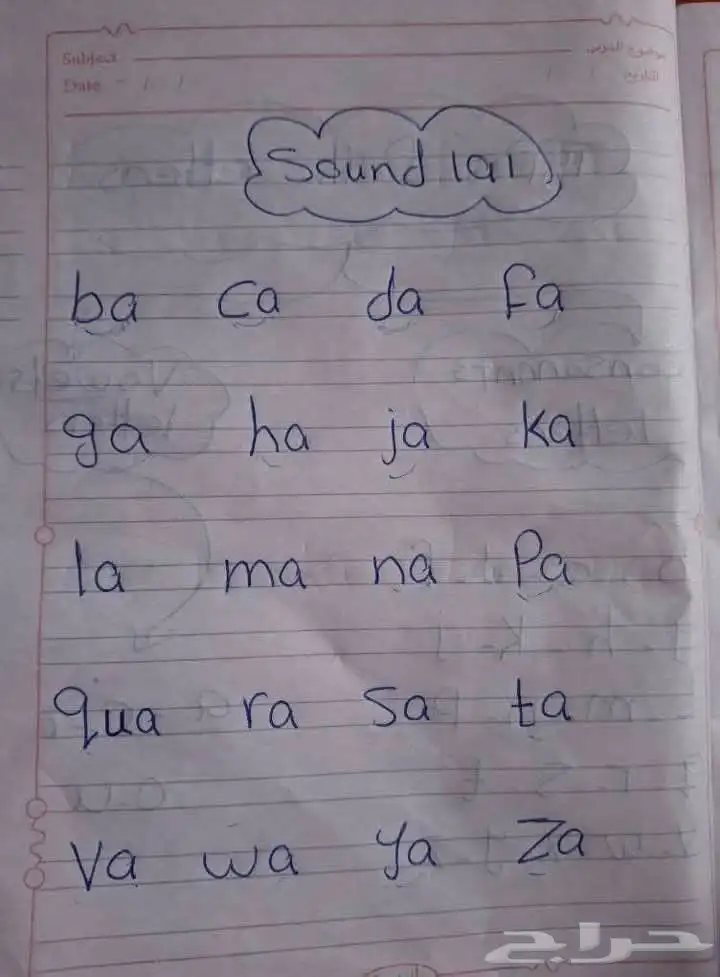 Subject
موضوع الدرس
Date / /
التاريخ / /
Sound /a/
ba ca da fa
ga ha ja ka
la ma na Pa
qua ra sa ta
Va wa ya Za
حراج